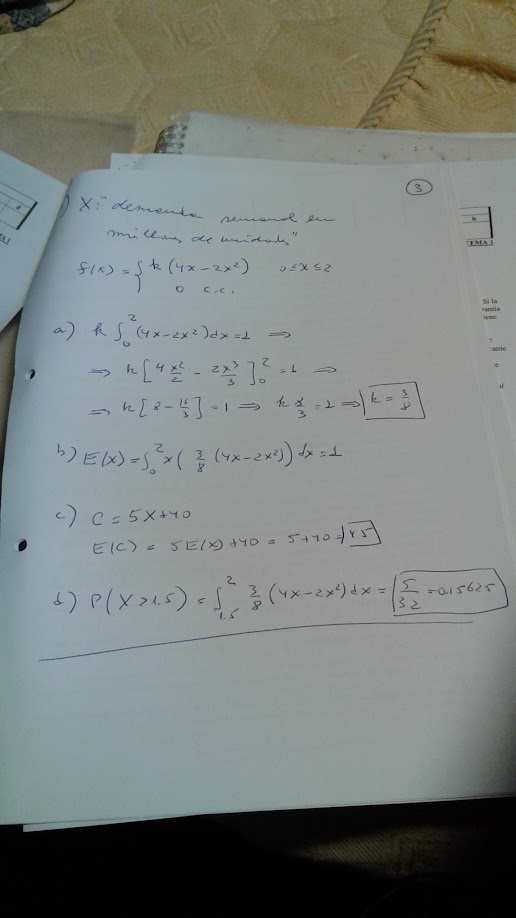 3
) X: "demanda semanal en
millones de unidades"
f(x) = { k(4x-2x²) 0≤x≤2
0 c.c.
a) k ∫₀² (4x-2x²)dx = 1 ⇒
⇒ k [4x²/2 - 2x³/3]₀² = 1 ⇒
⇒ k [8 - 16/3] = 1 ⇒ k 8/3 = 1 ⇒ k = 3/8
b) E(X) = ∫₀² x( 3/8 (4x-2x²)) dx = 1
c) C = 5X+40
E(C) = 5E(X)+40 = 5+40 = 45
d) P(X>1.5) = ∫₁.₅² 3/8 (4x-2x²)dx = 5/32 = 0.15625
TEMA 1
Si la